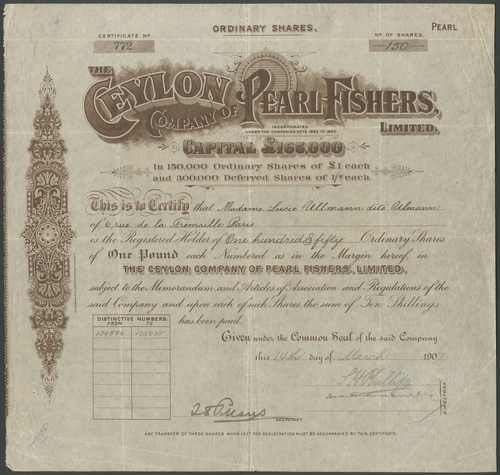 ORDINARY SHARES.
PEARL
CERTIFICATE No
772
No OF SHARES.
150
THE
CEYLON
COMPANY OF
PEARL FISHERS,
LIMITED.
INCORPORATED
UNDER THE COMPANIES ACTS 1862 TO 1900.
CAPITAL £165,000
In 150,000 Ordinary Shares of £1 each
and 300,000 Deferred Shares of 1/- each.
This is to Certify that Madame Lucie Ullmann dite Ulmann
of 6 rue de la Tremoille Paris
is the Registered Holder of One hundred & fifty Ordinary Shares
of One Pound each Numbered as in the Margin hereof, in
THE CEYLON COMPANY OF PEARL FISHERS, LIMITED,
subject to the Memorandum and Articles of Association and Regulations of the
said Company and upon each of such Shares the sum of Ten Shillings
has been paid.
DISTINCTIVE NUMBERS.
FROM TO
134886 135035
Given under the Common Seal of the said Company
this 14th day of March 1907
DIRECTORS.
SECRETARY.
ANY TRANSFER OF THESE SHARES WHEN LEFT FOR REGISTRATION MUST BE ACCOMPANIED BY THIS CERTIFICATE.